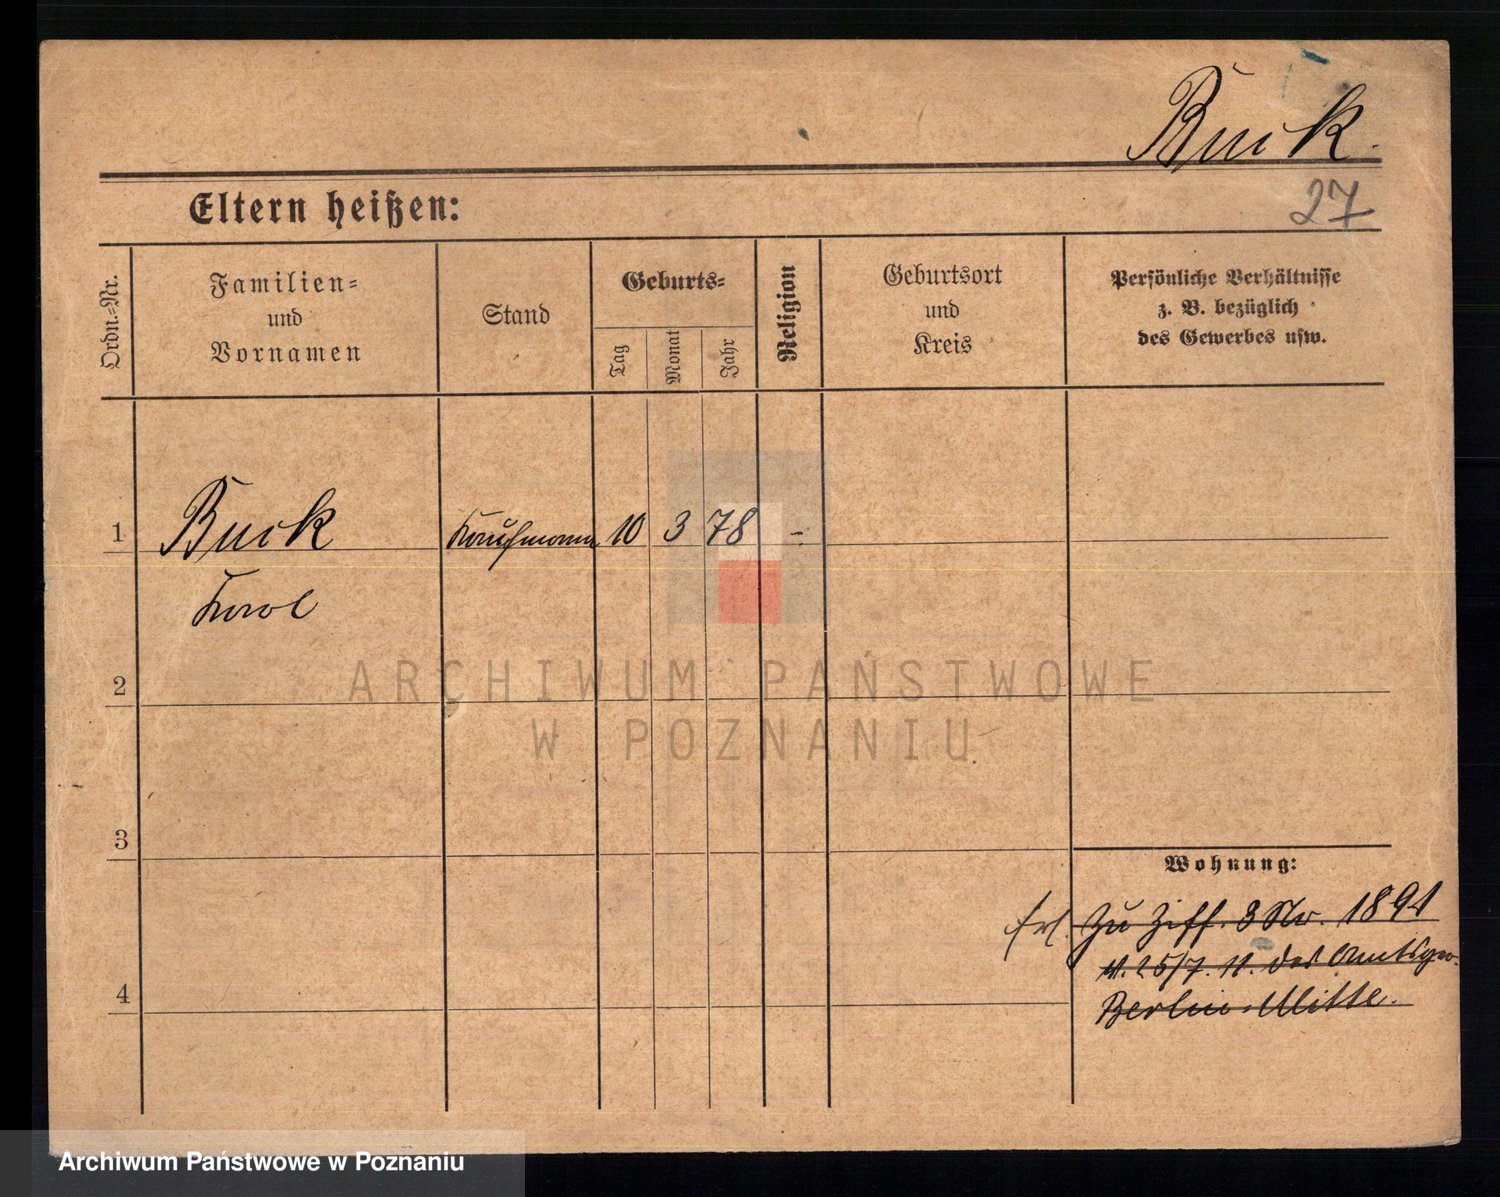 Buck.
27
Eltern heißen:
Ordn.-Nr.
Familien-
und
Vornamen
Stand
Geburts-
Tag
Monat
Jahr
Religion
Geburtsort
und
Kreis
Persönliche Verhältnisse
z. B. bezüglich
des Gewerbes usw.
1 Buck Kaufmann 10 3 78 -
Karl
2
3
4
Wohnung:
erl. Zu Ziff. 3 Nr. 1891
v. 25/7. 11. des Amtsger.
Berlin-Mitte.
ARCHIWUM PAŃSTWOWE
W POZNANIU
Archiwum Państwowe w Poznaniu